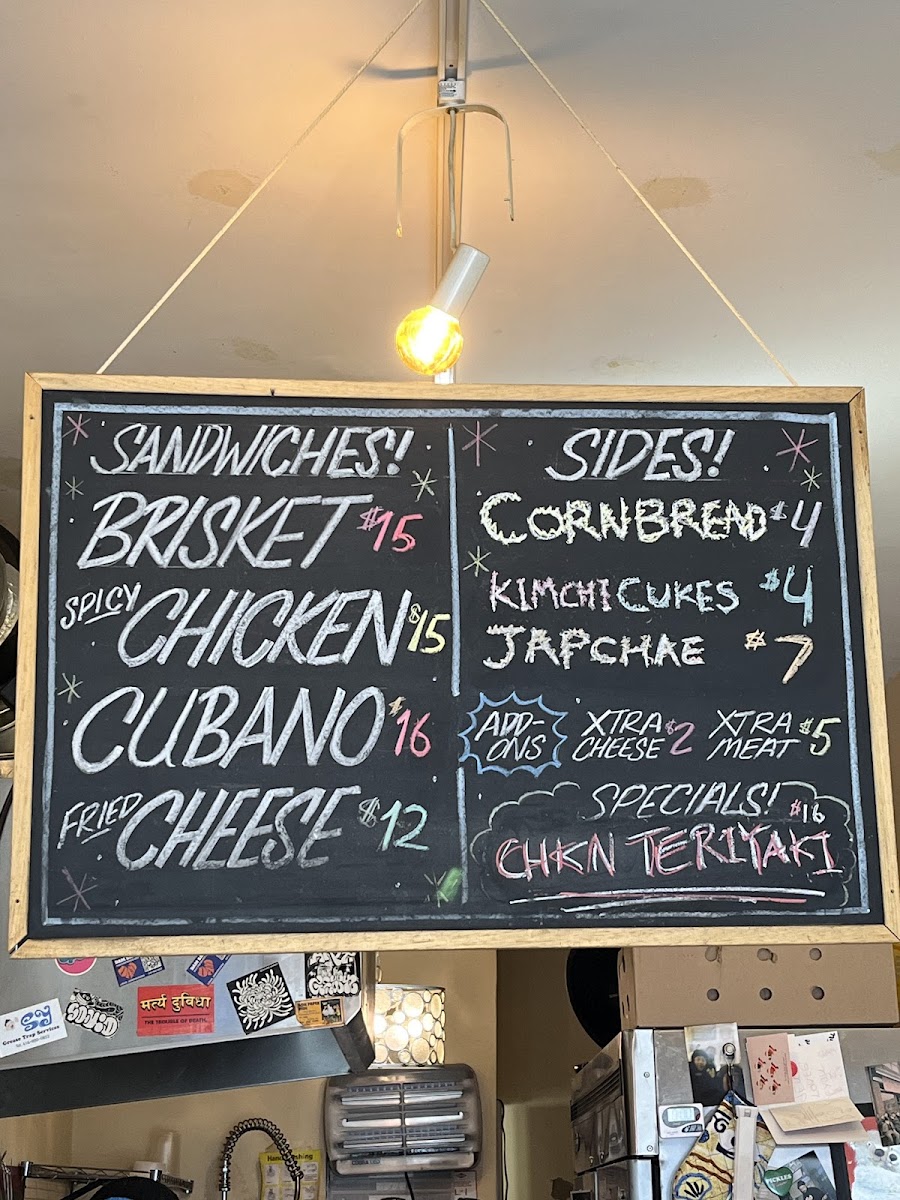 SANDWICHES!
BRISKET $15
SPICY CHICKEN $15
CUBANO $16
FRIED CHEESE $12
SIDES!
CORNBREAD $4
KIMCHI CUKES $4
JAPCHAE $7
ADD-
ONS
XTRA
CHEESE $2
XTRA
MEAT $5
SPECIALS!
$16
CHKN TERIYAKI
SY
Grease Trap Services
मर्त्य दुविधा
THE TROUBLE OF DEATH.
PICKLES